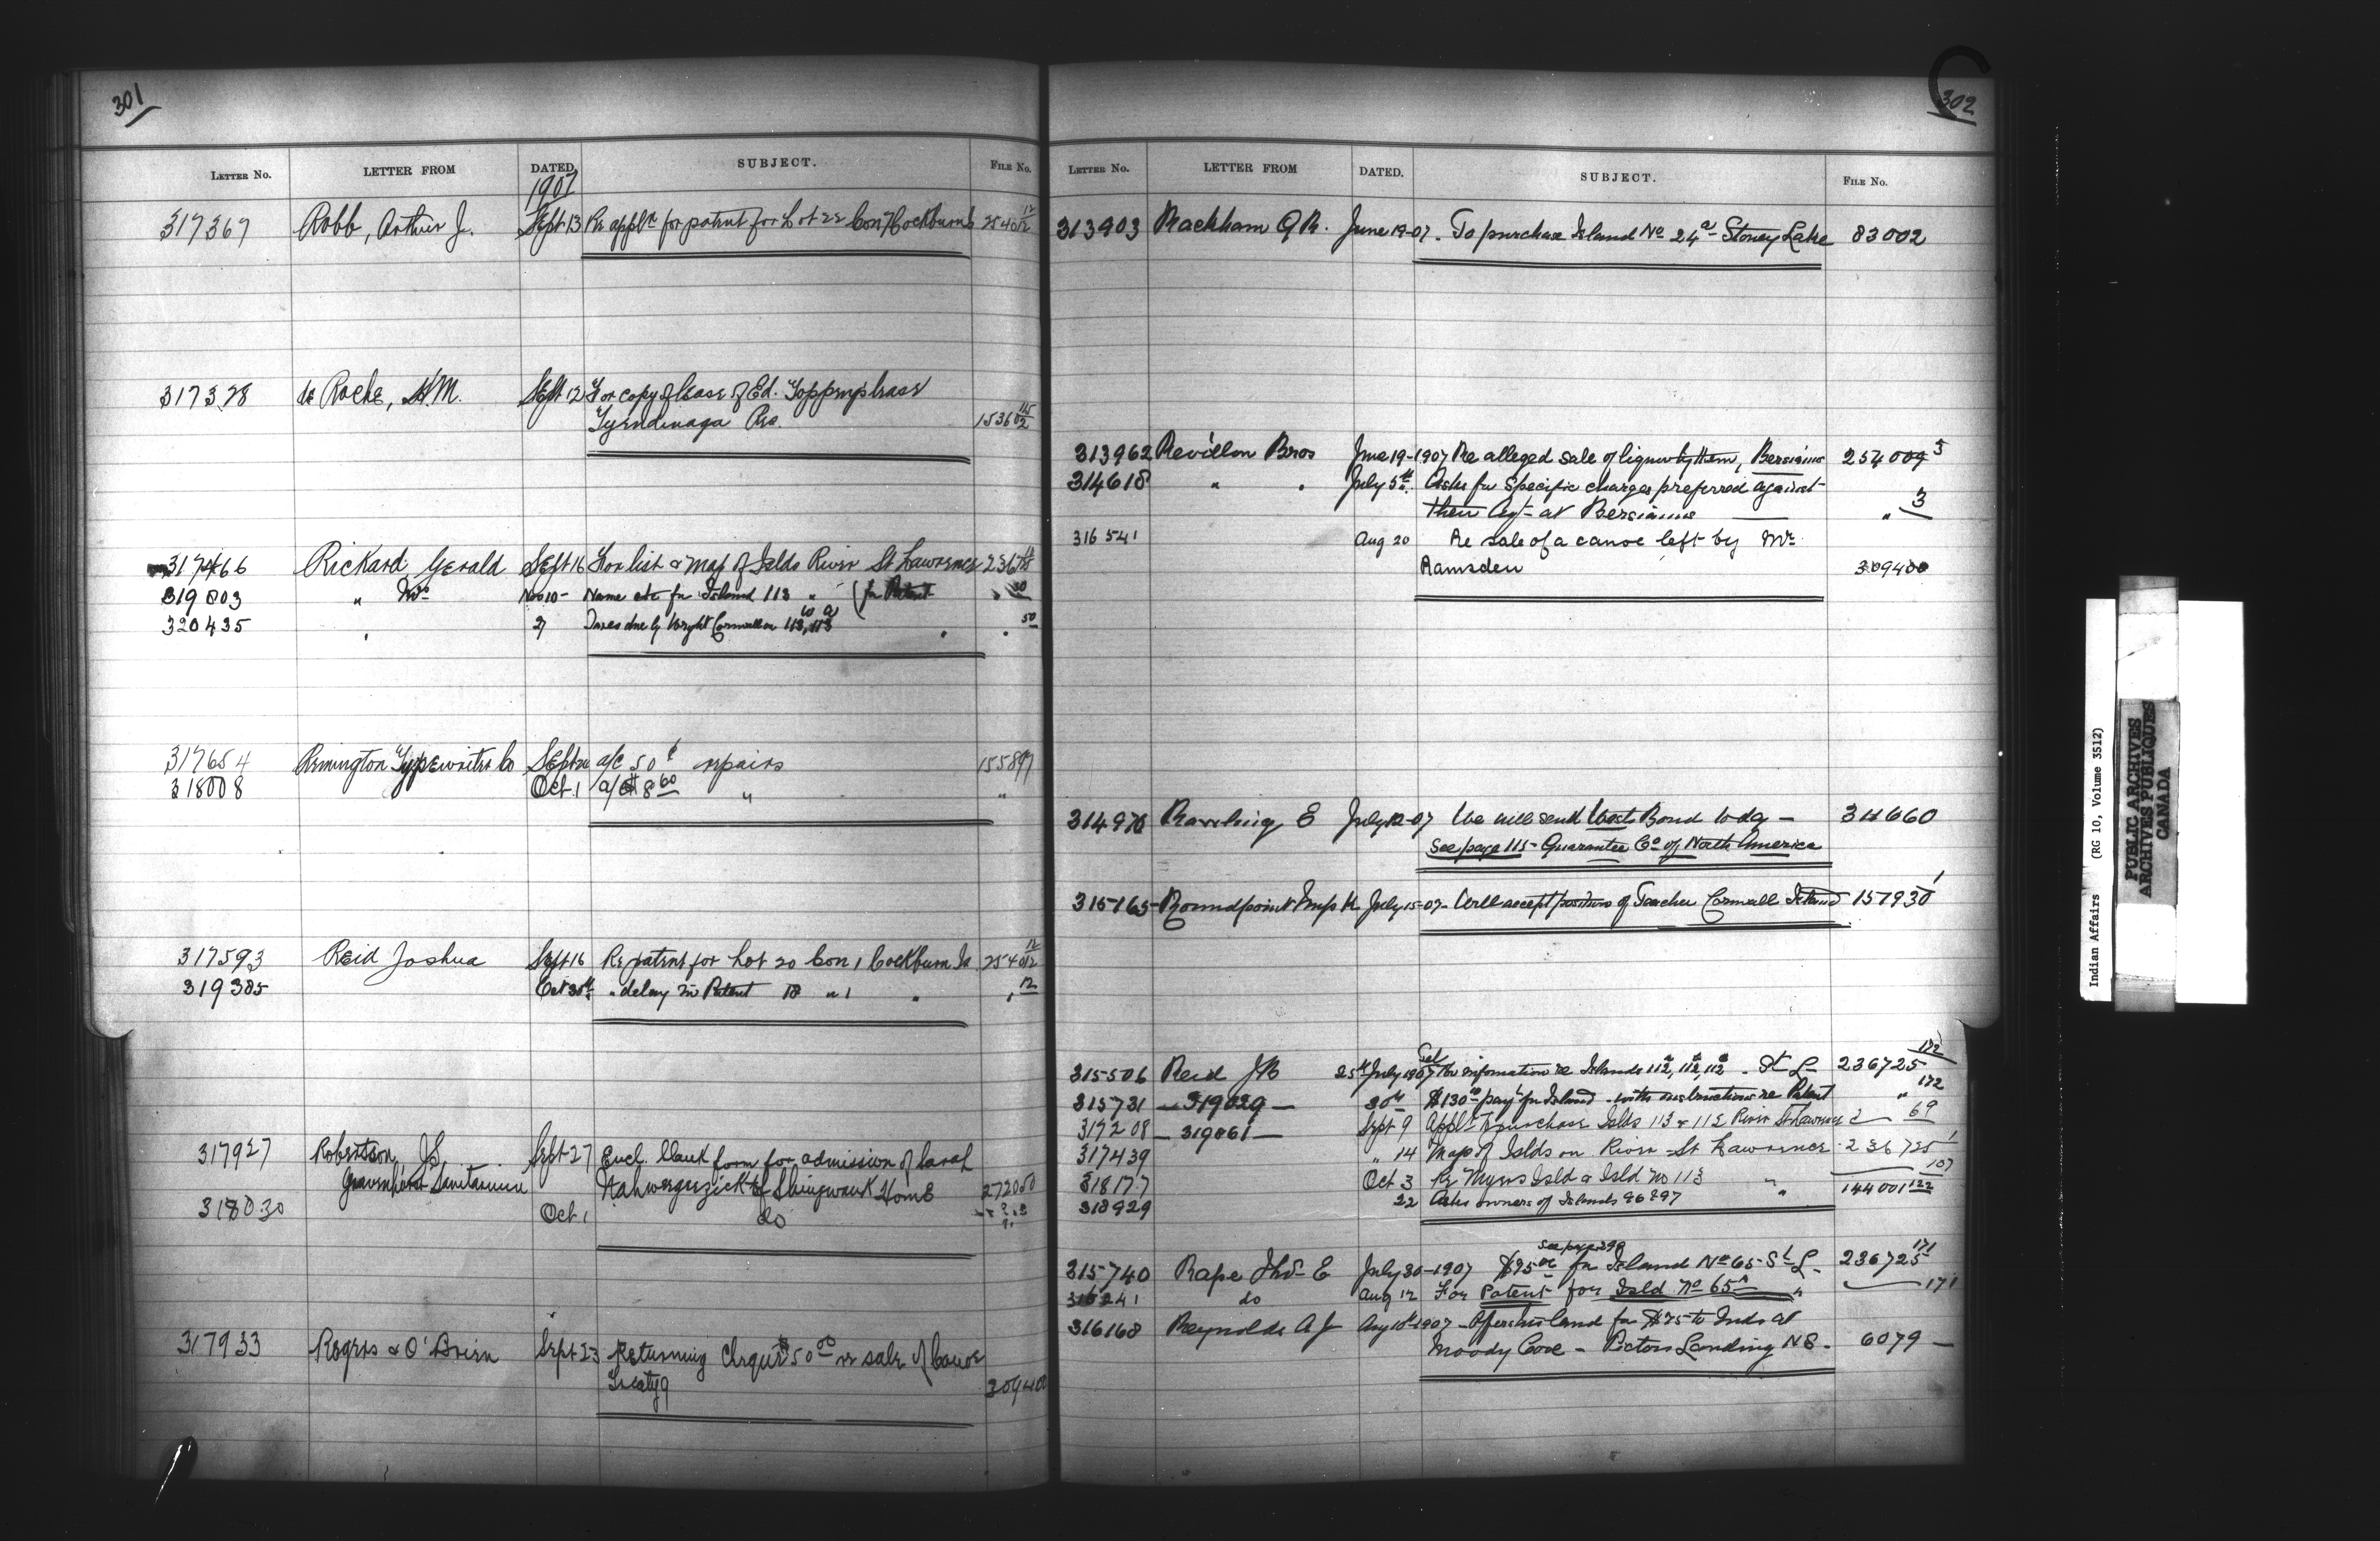 301
LETTER NO. LETTER FROM DATED. SUBJECT. FILE NO.
1907
317367 Robb, Arthur J. Sept 13 Re appln for patent for Lot 22 Con 7 Cockburn Is 25401 12/2
317328 de Roche, H.M. Sept 12 For copy of lease of Ed. Topping's lease
Tyendinaga Res. 15360 115/2
317466 Rickard Gerald Sept 16 For list & map of Islds River St Lawrence
319803 " Mr Nov 10 - Name etc for Island 113 " (for Patent " 50
320435 " 27 Taxes due by Wright Cornwall on " " 50
317654 Remington Typewriter Co Sept a/c 50¢ repairs 155897
318008 Oct. 1 a/c $8 60 " "
317593 Reid Joshua Sept 16 Re patent for Lot 20 Con 1 Cockburn Is. 25401 12/2
319385 Oct 30th " delay in Patent 18 " 1 " " 12
317927 Robertson, J.S. Sept 27 Encl. blank form for admission of Sarah
Gravenhurst Sanitarium of Shingwauk Home
318030 Oct 1 do
317933 Rogers & O'Brien Sept 23 Returning Cheque $50 00 re sale of Canoe
Treaty 9 309400
302
LETTER NO. LETTER FROM DATED. SUBJECT. FILE NO.
313903 Rackham G R. June 19-07. To purchase Island No 24a - Stoney Lake 83002
313962 Revillon Bros June 19-1907 Re alleged sale of liquor by them, Bersimis 254009 3
314618 " " July 5th. Asks for specific charges preferred against
their Agt at Bersimis — " 3
316541 Aug 20 Re sale of a canoe left by Mr
Ramsden 309400
314976 E July 12-07 We will send Bond to-day -
See page 115 - Guarantee Co of North America
315165 Roundpoint July 15-07- Will accept position of Teacher Cornwall Island 157930 1
172
315506 Reid J R 25th July 1907 for information re Islands St L 236725
315731 — 319029 — 30th $130 00 pay't for Island - with instructions re Patent " 172
317208 — 319061 — Sept 9 Appln to purchase Islds 113 & 112 River St Lawrence 69
317439 " 14 Map of Islds on River St Lawrence 236725 1
318177 Oct 3 Re Myers Isld & Isld No 113 " 107
318929 22 Asks owners of Islands 96 & 97 " 144001 122
See page 299
315740 Rape Thos E July 30-1907 $95 00 for Island No 65 - St L - 236725 171
316241 do Aug 12 For Patent for Isld No 65A " 171
316168 Reynolds A J Aug 10th 1907 - Offers his land for $75 to Inds at
Moody Cove - Pictou Landing NS - 6079 —
Indian Affairs (RG 10, Volume 3512)
PUBLIC ARCHIVES
ARCHIVES PUBLIQUES
CANADA